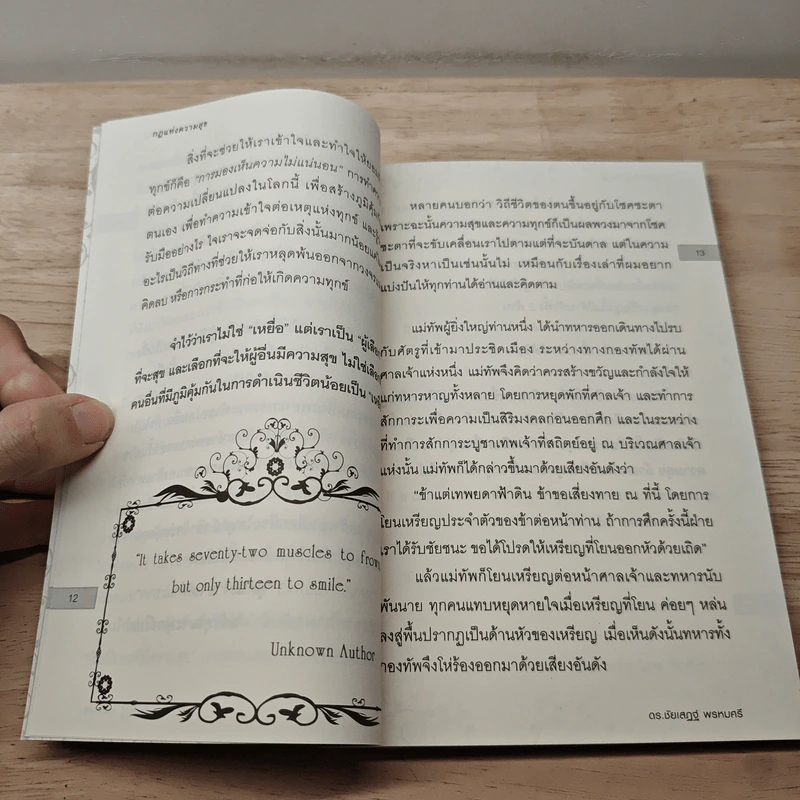 กฎแห่งความสุข
สิ่งที่จะช่วยให้เราเข้าใจและทำใจให้ยอม
ทุกข์ก็คือ "การมองเห็นความไม่แน่นอน" การทำความ
ต่อความเปลี่ยนแปลงในโลกนี้ เพื่อสร้างภูมิคุ้ม
ตนเอง เพื่อทำความเข้าใจต่อเหตุแห่งทุกข์ และ
รับมืออย่างไร ใจเราจะจดจ่อกับสิ่งนั้นมากน้อย
อะไรเป็นวิถีทางที่ช่วยให้เราหลุดพ้นออกจากวงจร
คิดลบ หรือการกระทำที่ก่อให้เกิดความทุกข์
จำไว้ว่าเราไม่ใช่ "เหยื่อ" แต่เราเป็น "ผู้เลือก
ที่จะสุข และเลือกที่จะให้ผู้อื่นมีความสุข ไม่ใช่เลือก
คนอื่นที่มีภูมิคุ้มกันในการดำเนินชีวิตน้อยเป็น
"It takes seventy-two muscles to frown
but only thirteen to smile."
Unknown Author
12
หลายคนบอกว่า วิถีชีวิตของตนขึ้นอยู่กับโชคชะตา
เพราะฉะนั้นความสุขและความทุกข์ก็เป็นผลพวงมาจากโชค
ชะตาที่จะขับเคลื่อนเราไปตามแต่ที่จะบันดาล แต่ในความ
เป็นจริงหาเป็นเช่นนั้นไม่ เหมือนกับเรื่องเล่าที่ผมอยาก
แบ่งปันให้ทุกท่านได้อ่านและคิดตาม
13
แม่ทัพผู้ยิ่งใหญ่ท่านหนึ่ง ได้นำทหารออกเดินทางไปรบ
กับศัตรูที่เข้ามาประชิดเมือง ระหว่างทางกองทัพได้ผ่าน
ศาลเจ้าแห่งหนึ่ง แม่ทัพจึงคิดว่าควรสร้างขวัญและกำลังใจให้
แก่ทหารหาญทั้งหลาย โดยการหยุดพักที่ศาลเจ้า และทำการ
สักการะเพื่อความเป็นสิริมงคลก่อนออกศึก และในระหว่าง
ที่ทำการสักการะบูชาเทพเจ้าที่สถิตย์อยู่ ณ บริเวณศาลเจ้า
แห่งนั้น แม่ทัพก็ได้กล่าวขึ้นมาด้วยเสียงอันดังว่า
"ข้าแต่เทพยดาฟ้าดิน ข้าขอเสี่ยงทาย ณ ที่นี้ โดยการ
โยนเหรียญประจำตัวของข้าต่อหน้าท่าน ถ้าการศึกครั้งนี้ฝ่าย
เราได้รับชัยชนะ ขอได้โปรดให้เหรียญที่โยนออกหัวด้วยเถิด"
แล้วแม่ทัพก็โยนเหรียญต่อหน้าศาลเจ้าและทหารนับ
พันนาย ทุกคนแทบหยุดหายใจเมื่อเหรียญที่โยน ค่อยๆ หล่น
ลงสู่พื้นปรากฏเป็นด้านหัวของเหรียญ เมื่อเห็นดังนั้นทหารทั้ง
กองทัพจึงโห่ร้องออกมาด้วยเสียงอันดัง
ดร.ชัยเสฏฐ์ พรหมศรี